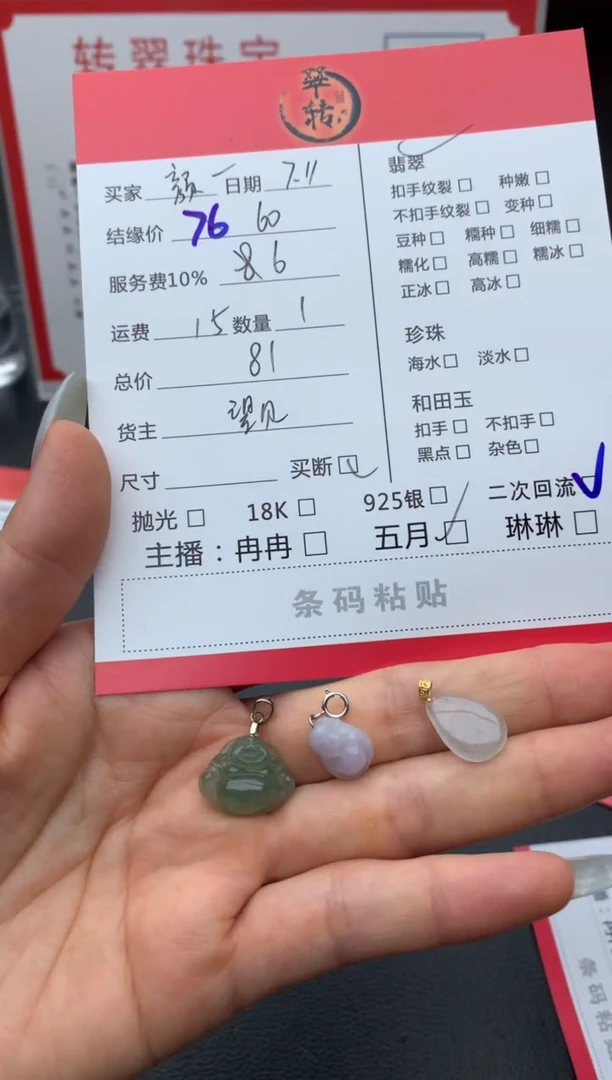 转翠珠宝
翠转
买家 颜 日期 7.11
结缘价 76 60
服务费10% 8 6
运费 15 数量 1
总价 81
货主 望见
尺寸 买断
抛光 18K 925银 二次回流
主播：冉冉 五月 琳琳
条码粘贴
翡翠
扣手纹裂 种嫩
不扣手纹裂 变种
豆种 糯种 细糯
糯化 高糯 糯冰
正冰 高冰
珍珠
海水 淡水
和田玉
扣手 不扣手
黑点 杂色
条码粘